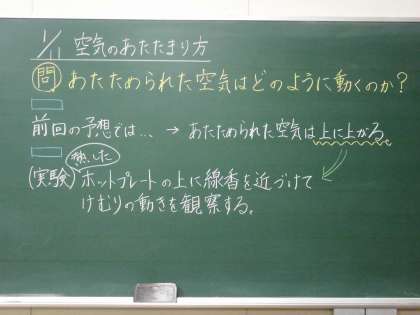 1/11 空気のあたたまり方
問 あたためられた空気はどのように動くのか?
前回の予想では... → あたためられた空気は上に上がる。
熱した
(実験) ホットプレートの上に線香を近づけて
けむりの動きを観察する。